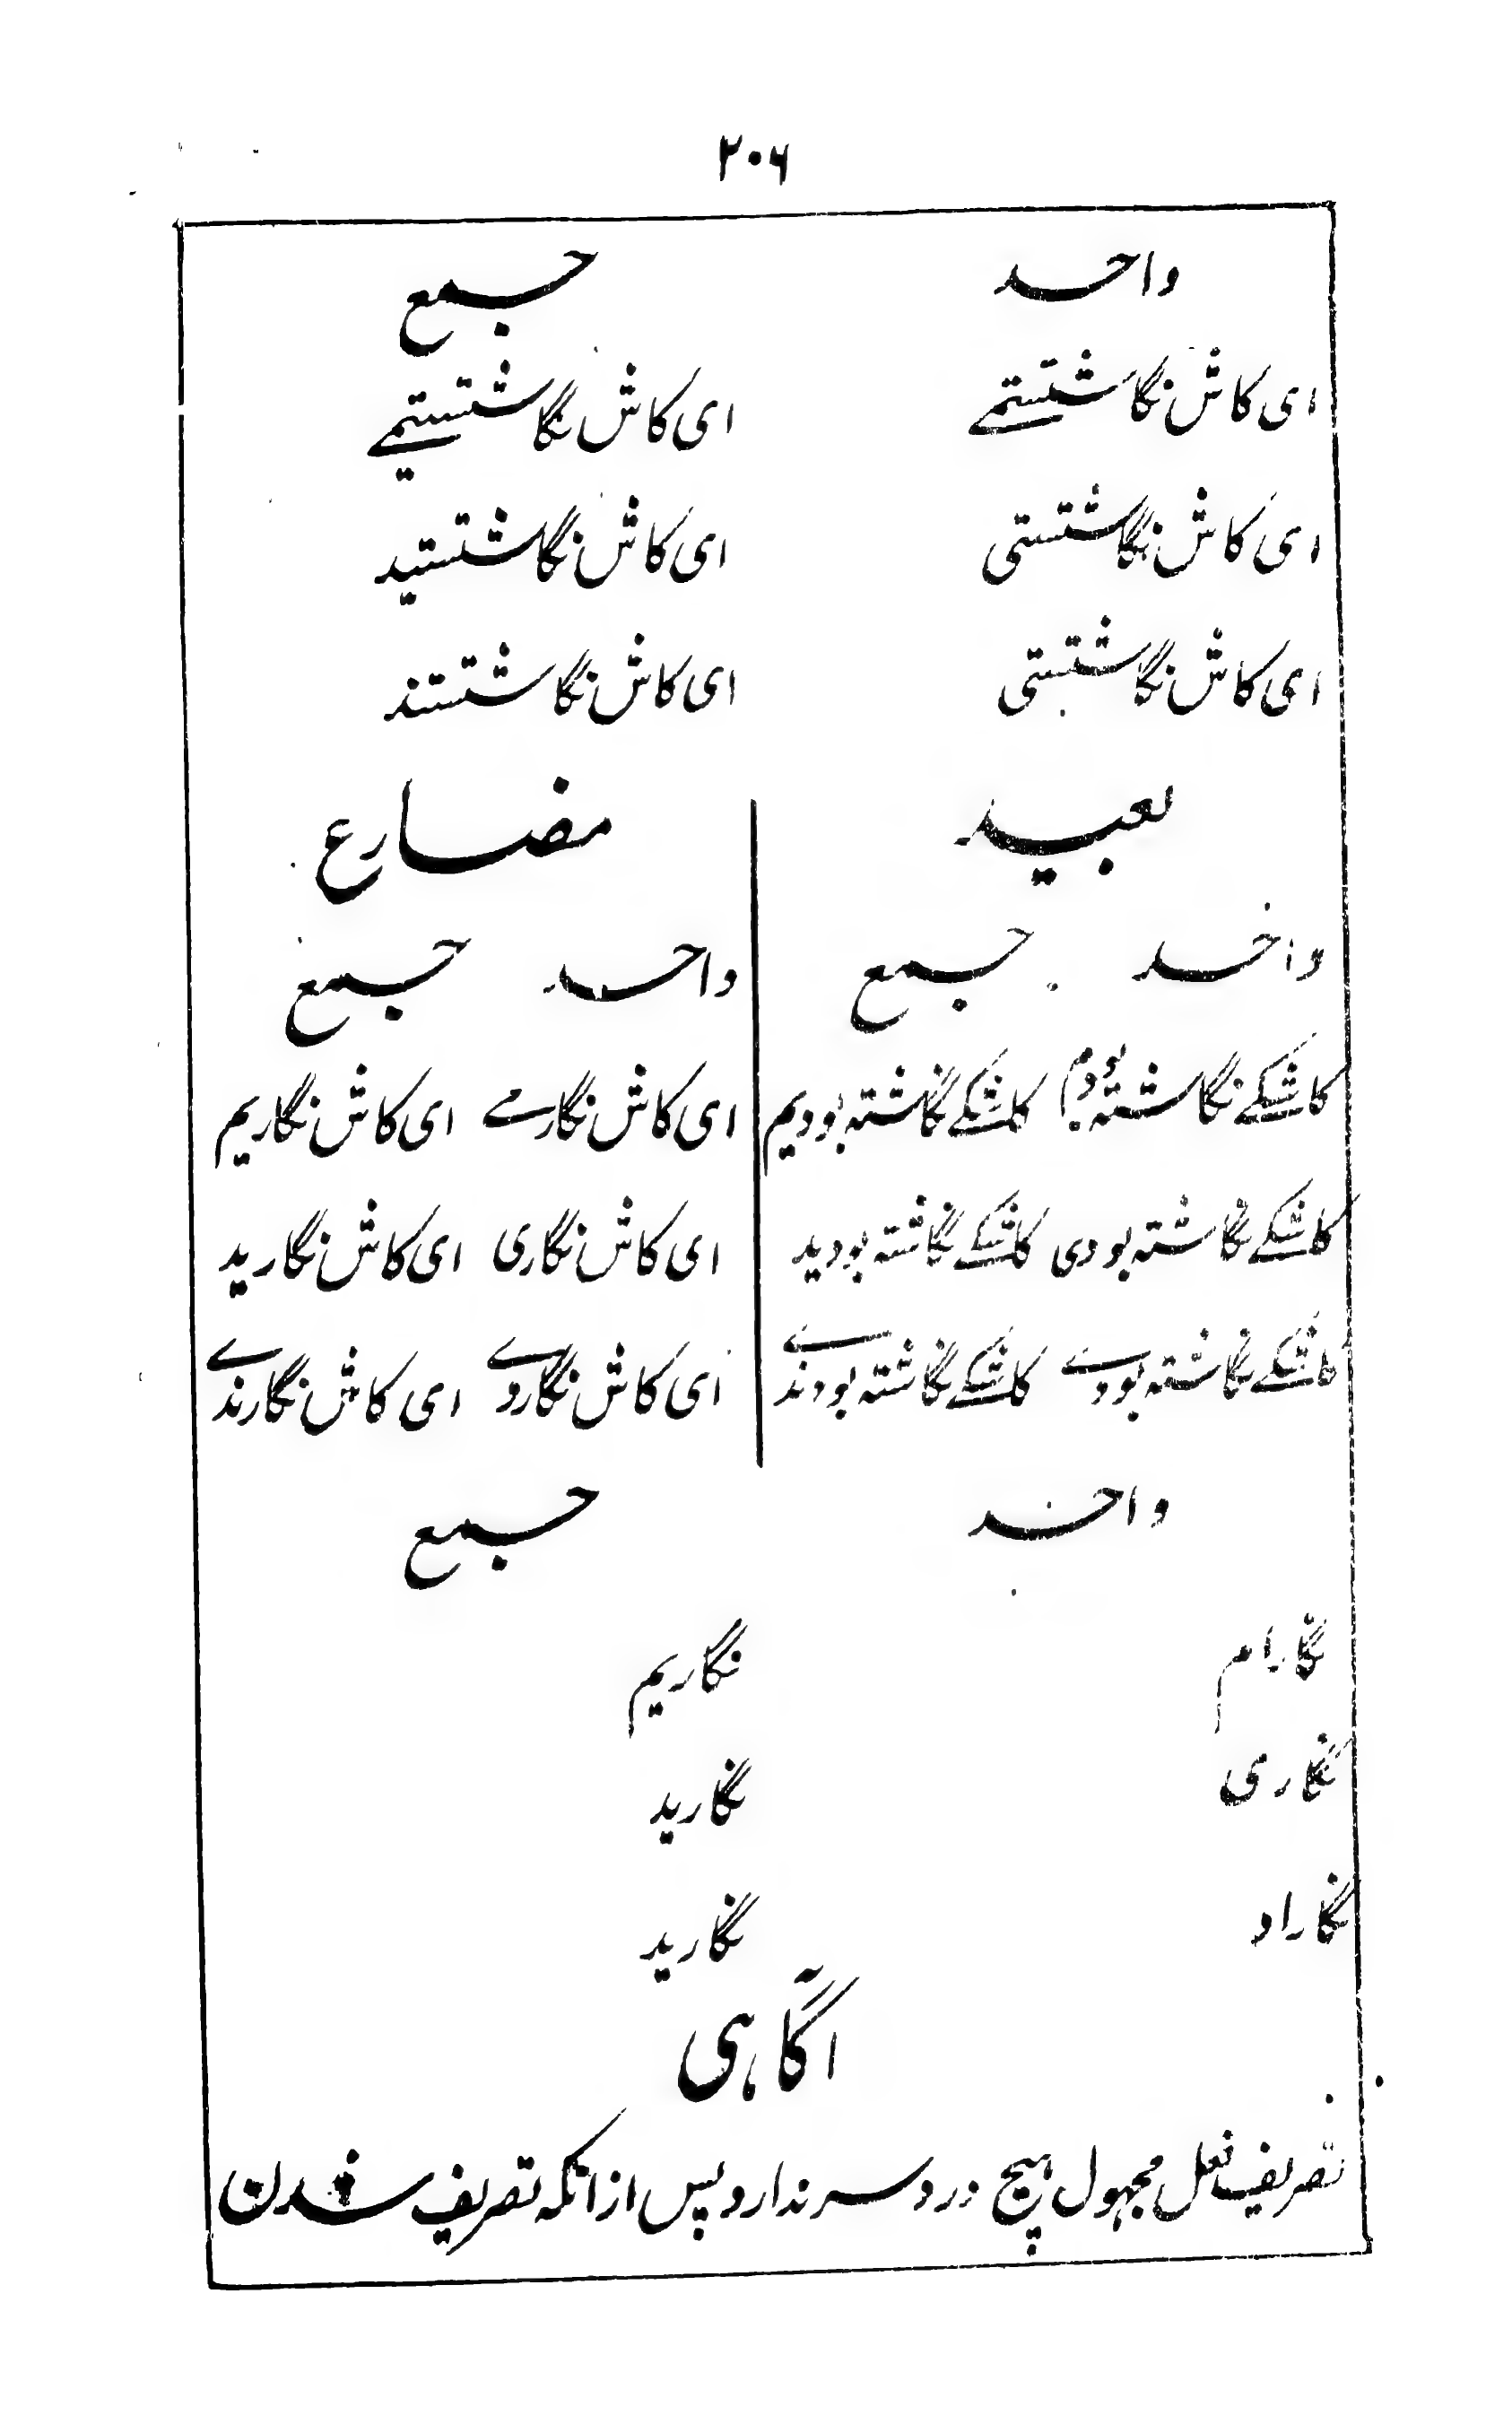 ۲۰۶
واحد جمع
ای کاش نگاشتستمے ای کاش نگاشتستیمے
ای کاش نگاشتستی ای کاش نگاشتستید
ای کاش نگاشتستی ای کاش نگاشتستند
بعید مضارع
واحد جمع واحد جمع
کاشکے نگاشته بودم کاشکے نگاشته بودیم ای کاش نگارمے ای کاش نگاریم
کاشکے نگاشته بودی کاشکے نگاشته بودید ای کاش نگاری ای کاش نگارید
کاشکے نگاشته بودے کاشکے نگاشته بودندے ای کاش نگاردے ای کاش نگارندے
واحد جمع
نگارام نگاریم
نگاری نگارید
نگاراد نگارید
آگاہی
تصریف فعل مجهول ہیچ دردسر ندارد پس از انکه تصریف شدن